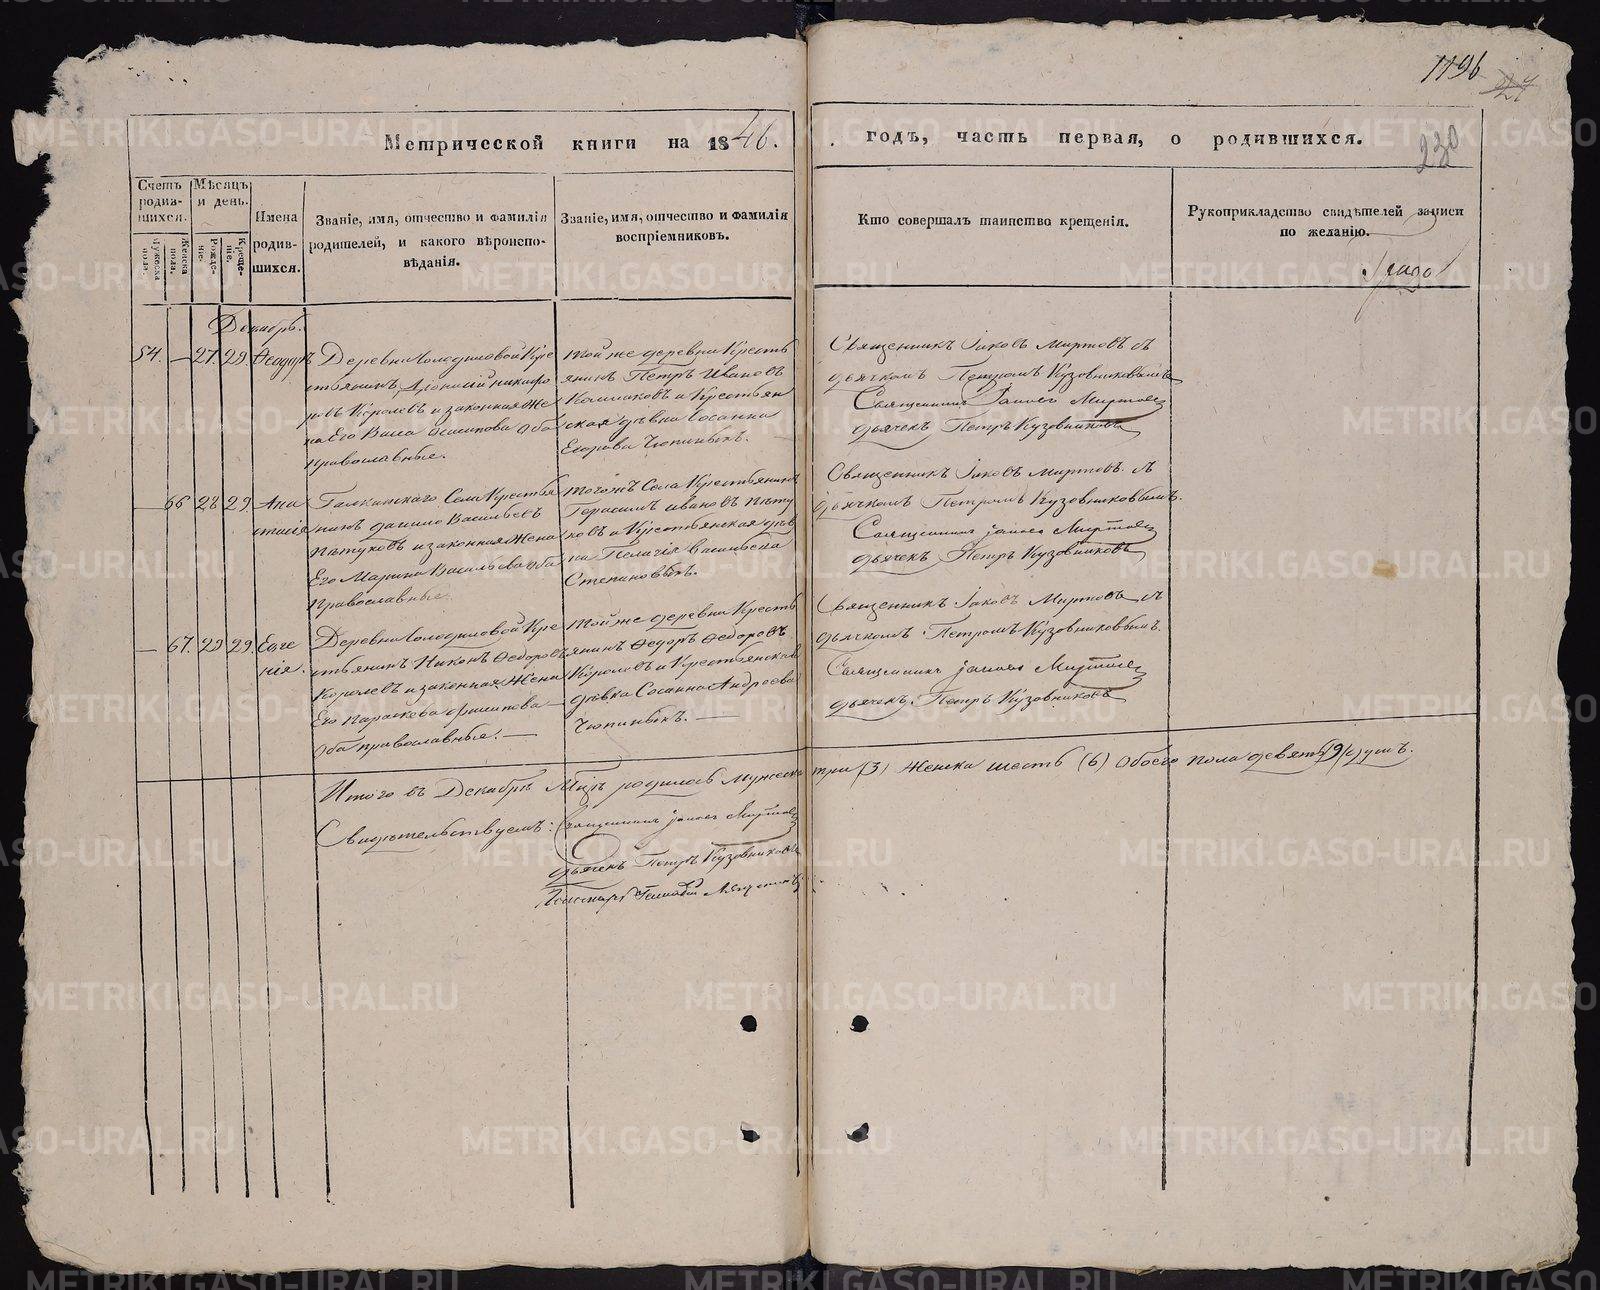 1196
27
Метрической книги на 1846.
годъ, часть первая, о родившихся.
230
Счетъ родив-шихся.
Мѣсяцъ и день.
Мужеска пола.
Женска пола.
Рожде-ніе.
Креще-ніе.
Имена родив-шихся.
Званіе, имя, отчество и фамилія
родителей, и какого вѣроиспо-
вѣданія.
Званіе, имя, отчество и фамилія
воспріемниковъ.
Кто совершалъ таинство крещенія.
Рукоприкладство свидѣтелей записи
по желанію.
Декабрь.
54. — 27. 29. Ѳеодоръ
Деревни Кре
стьянинъ Никифо
ровъ Королевъ и законная Же
на Его Васа Оба
православные.
Той же деревни Кресть
янинъ Петръ Ивановъ
и Крестьян
ская дѣвка Сосанна
Егорова Чюпиныхъ.
Священникъ Іаковъ Миртовъ съ
дьячкомъ Петромъ Кузовниковымъ
Священникъ Іаковъ Миртовъ
дьячекъ Петръ Кузовниковъ
— 66 28 29 Ана
стасія
Села Крестья
нинъ Данило Васильевъ
Пѣтуховъ и законная Жена
Его Марина Васильева оба
Православные
Тогожъ Села Крестьянинъ
Герасимъ Ивановъ Пѣту
ховъ и Крестьянская дѣв
ка Пелагія Васильева
Степановыхъ.
Священникъ Іаковъ Миртовъ съ
дьячкомъ Петромъ Кузовниковымъ.
Священникъ Іаковъ Миртовъ
дьячекъ Петръ Кузовниковъ
— 67. 29 29 Евге
нія.
Деревни Кре
стьянинъ Никонъ Ѳедоровъ
Королевъ и законная Жена
Его Параскева Филипова —
Оба православные. —
Той же деревни Кресть
янинъ Ѳедоръ Ѳедоровъ
Королевъ и Крестьянская
дѣвка Сосанна Андреева
Чюпиныхъ. —
Священникъ Іаковъ Миртовъ съ
дьячкомъ Петромъ Кузовниковымъ.
Священникъ Іаковъ Миртовъ
дьячекъ Петръ Кузовниковъ
Итого въ Декабрѣ М͠цѣ родилось Мужеска три (3) Женска шесть (6) Обоего пола девять (9) душъ.
Свидѣтельствуемъ: Священникъ Іаковъ Миртовъ
дьячекъ Петръ Кузовниковъ
Пономарь
METRIKI.GASO-URAL.RU